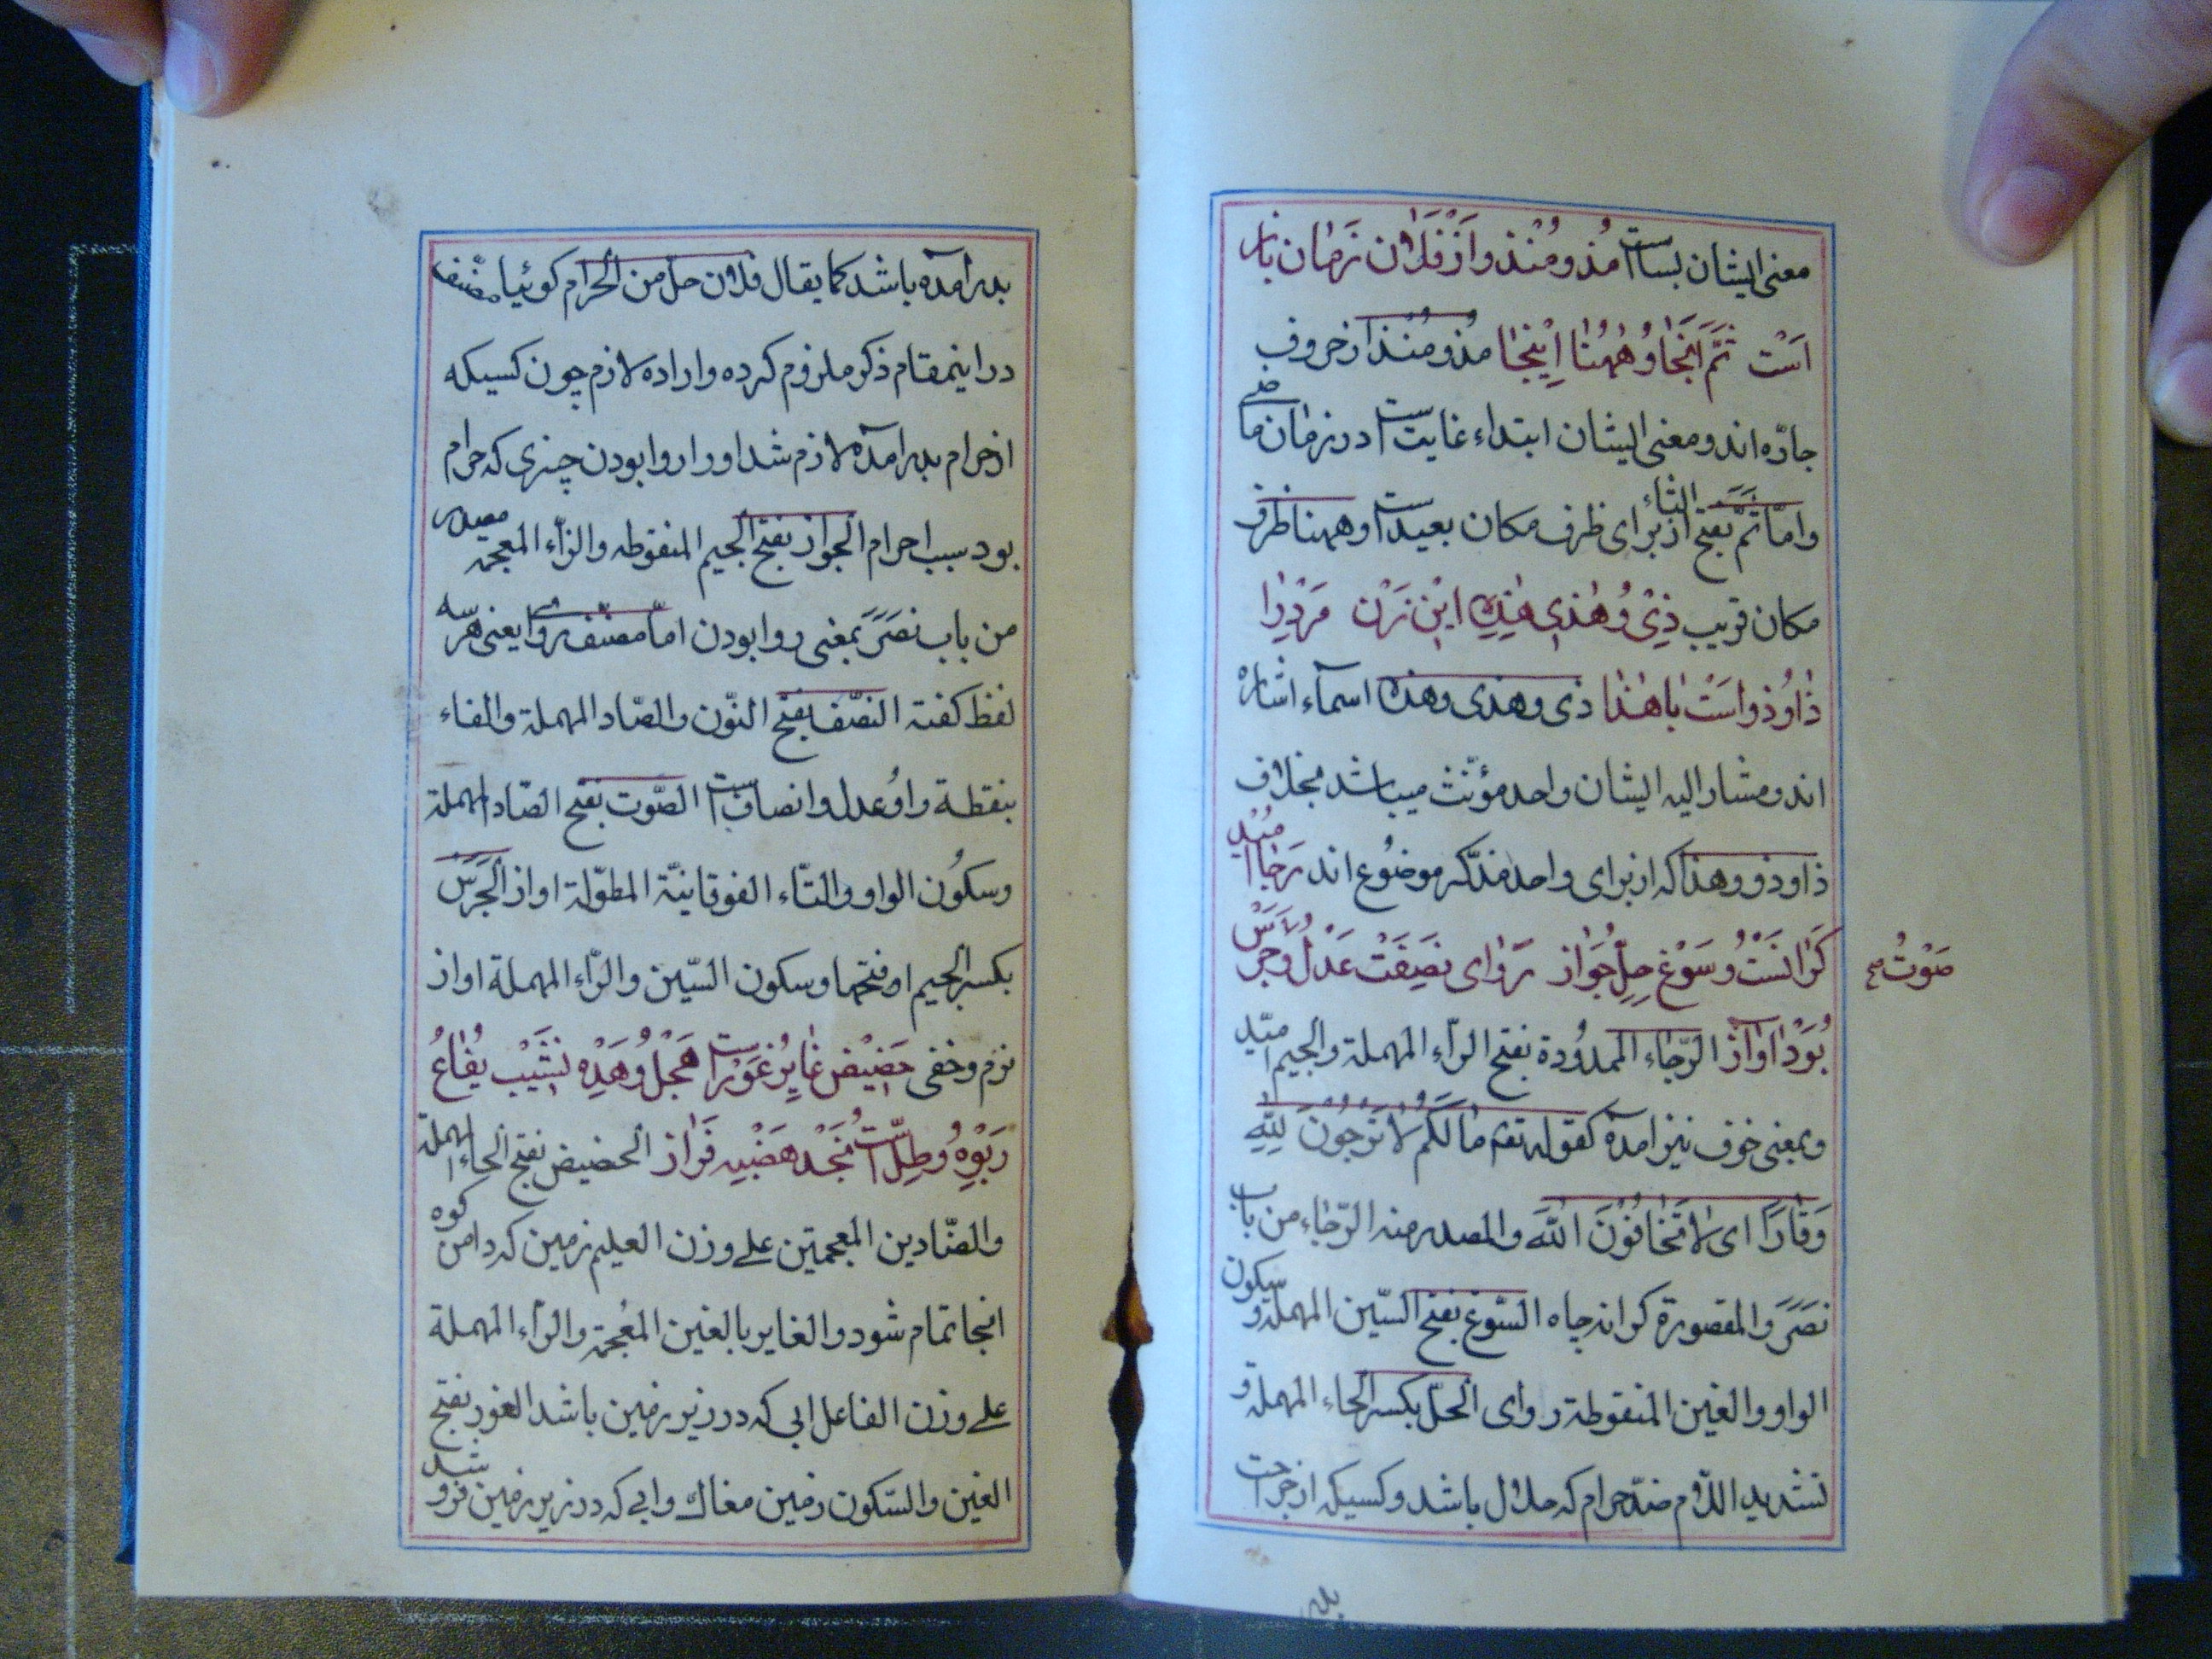 معنی ایشان بسا است مُذ و مُنْذُ و اَزْ فَلان زَمان باز
اَسْت ثَمَّ آنْجا وُ هٰهُنا اِینْجا مذ و منذ از حروف
جارّه اند و معنی ایشان ابتداء غایت است در زمان ماضی
و امّا ثَمَّ بفتح الثاء از برای ظرف مکان بعید است و ههنا ظرف
مکان قریب ذِیْ وُ هٰذی هٰذِهِ این زَن مَرْدْرا
ذٰا وُ ذو اَسْت باهٰذا ذی و هذی و هذه اسمآء اشاره
اند و مشار الیه ایشان واحد مؤنّث میباشد بخلاف
ذا و ذو و هذا که از برای واحد مذکّر موضُوع اند رَجا اُمّید
کَرانَسْت وُ سَوْغ حِلّ جَواز رَوای نَصِفَت عَدْل وُ جَرْس
صَوْتُ صح
بُوَدْ آواز الرّجاء الممدُودة بفتح الرّاء المهملة والجیم امّید
و بمعنی خوف نیز آمده کقوله تعم مٰا لَکُمْ لاٰ تَرْجُونَ لِلّٰهِ
وَقٰارًا ای لاٰ تَخٰافُوْنَ اللّٰهَ والمصدر منه الرّجاء من باب
نصَرَ والمقصورة کرانه چاه السّوغ بفتح السّین المهملة و سکون
الواو والغین المنقوطة روای الحلّ بکسر الحاء المهملة و
تشدید اللّام ضدّ حرام که حلال باشد و کسیکه از حرا
بدر
بدر آمده باشد کما یقال فلان حلّ من الحرام گوئیا مصنّف
در اینمقام ذکر ملزوم کرده و اراده لازم چون کسیکه
از حرام بدر آمده لازم شد او را روا بودن چیزی که حرام
بود سبب احرام الجواز بفتح الجیم المنقوطه والزّاء المعجمة مصدر
من باب نصَرَ بمعنی روا بودن امّا مصنّف روای یعنی هر سه
لفظ کفته النصّف بفتح النّون والصّاد المهملة والفاء
بنقطة واو عدل و انصاف است الصّوت بفتح الصّاد المهملة
و سکُون الواو والتّاء الفوقانیّة المطوّلة اواز الجَرَسَ
بکسر الجیم او فتحها و سکون السّین والرّاء المهملة اواز
نرم و خفی حَضِیْض غایِر غَوْر است هَجْل وُ وَهْدِه نَشَیْب یُفٰاعُ
رَبْوِه وُ طِلّ است نَجْد هَضْبِه فَراز الحضیض بفتح الحاء المهملة
والضّادین المعجمتین علی وزن العلیم زمین که دامن کوه
انجا تمام شود والغایر بالغین المعُجمة والرّاء المهملة
علی وزن الفاعل ابی که در زیر زمین باشد الغور بفتح
الغین والسّکون زمین مغاک و ابی که در زیر زمین فرو شد